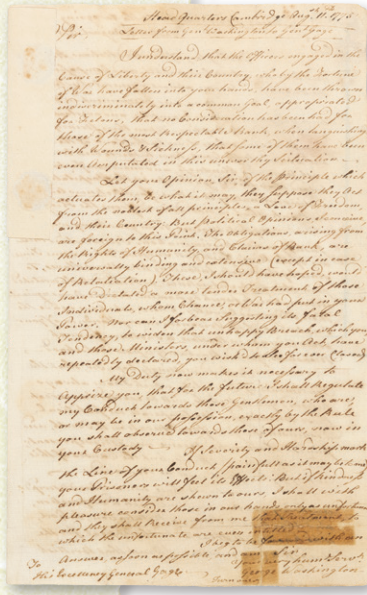 Head Quarters Cambridge Aug. 11. 1775
Sir Letter from Genl Washington to Genl Gage
I understand that the Officers engaged in the
Cause of Liberty and their Country, who by the fortune
of War have fallen into your hands, have been thrown
indiscriminately into a common Goal appropriated
for Felons, that no Consideration has been had for
those of the most Respectable Rank, when languishing
with Wounds & Sickness, that some of them have been
even Amputated in this unworthy Situation
Let your Opinion, Sir, of the Principle which
actuates them, be what it may, they suppose they Act
from the noblest of all principles, a Love of Freedom,
and their Country. But Political Opinions I conceive
are foreign to this Point. The Obligations, arising from
the Rights of Humanity, and Claims of Rank, are
universally binding and extensive (except in case
of Retaliation) These, I should have hoped, would
have dictated a more tender Treatment of those
Individuals, whom Chance, or War had put in your
Power. Nor can I forbear Suggesting its fatal
Tendency, to widen that unhappy Breach, which you
and those Ministers, under whom you Act, have
repeatedly declared, you wish'd to see forever Closed
My Duty now makes it necessary to
Apprize you, that for the future I shall Regulate
my Conduct towards those Gentlemen, who are,
or may be in our Possession, exactly by the Rule
you shall observe towards those of ours, now in
your Custody If Severity and Hardship mark
the Line of your Conduct (painfull as it may be to me)
your Prisoners will feel its Effects: But if kindness
and Humanity are shewn to ours, I shall with
pleasure consider those in our hands, only as unfortunate
and they shall Receive from me that Treatment to
which the unfortunate are ever intitled
I beg to be favored with an
Answer, as soon as possible and am Sir
Your very hum. Servt.
To George Washington
His Excellency General Gage